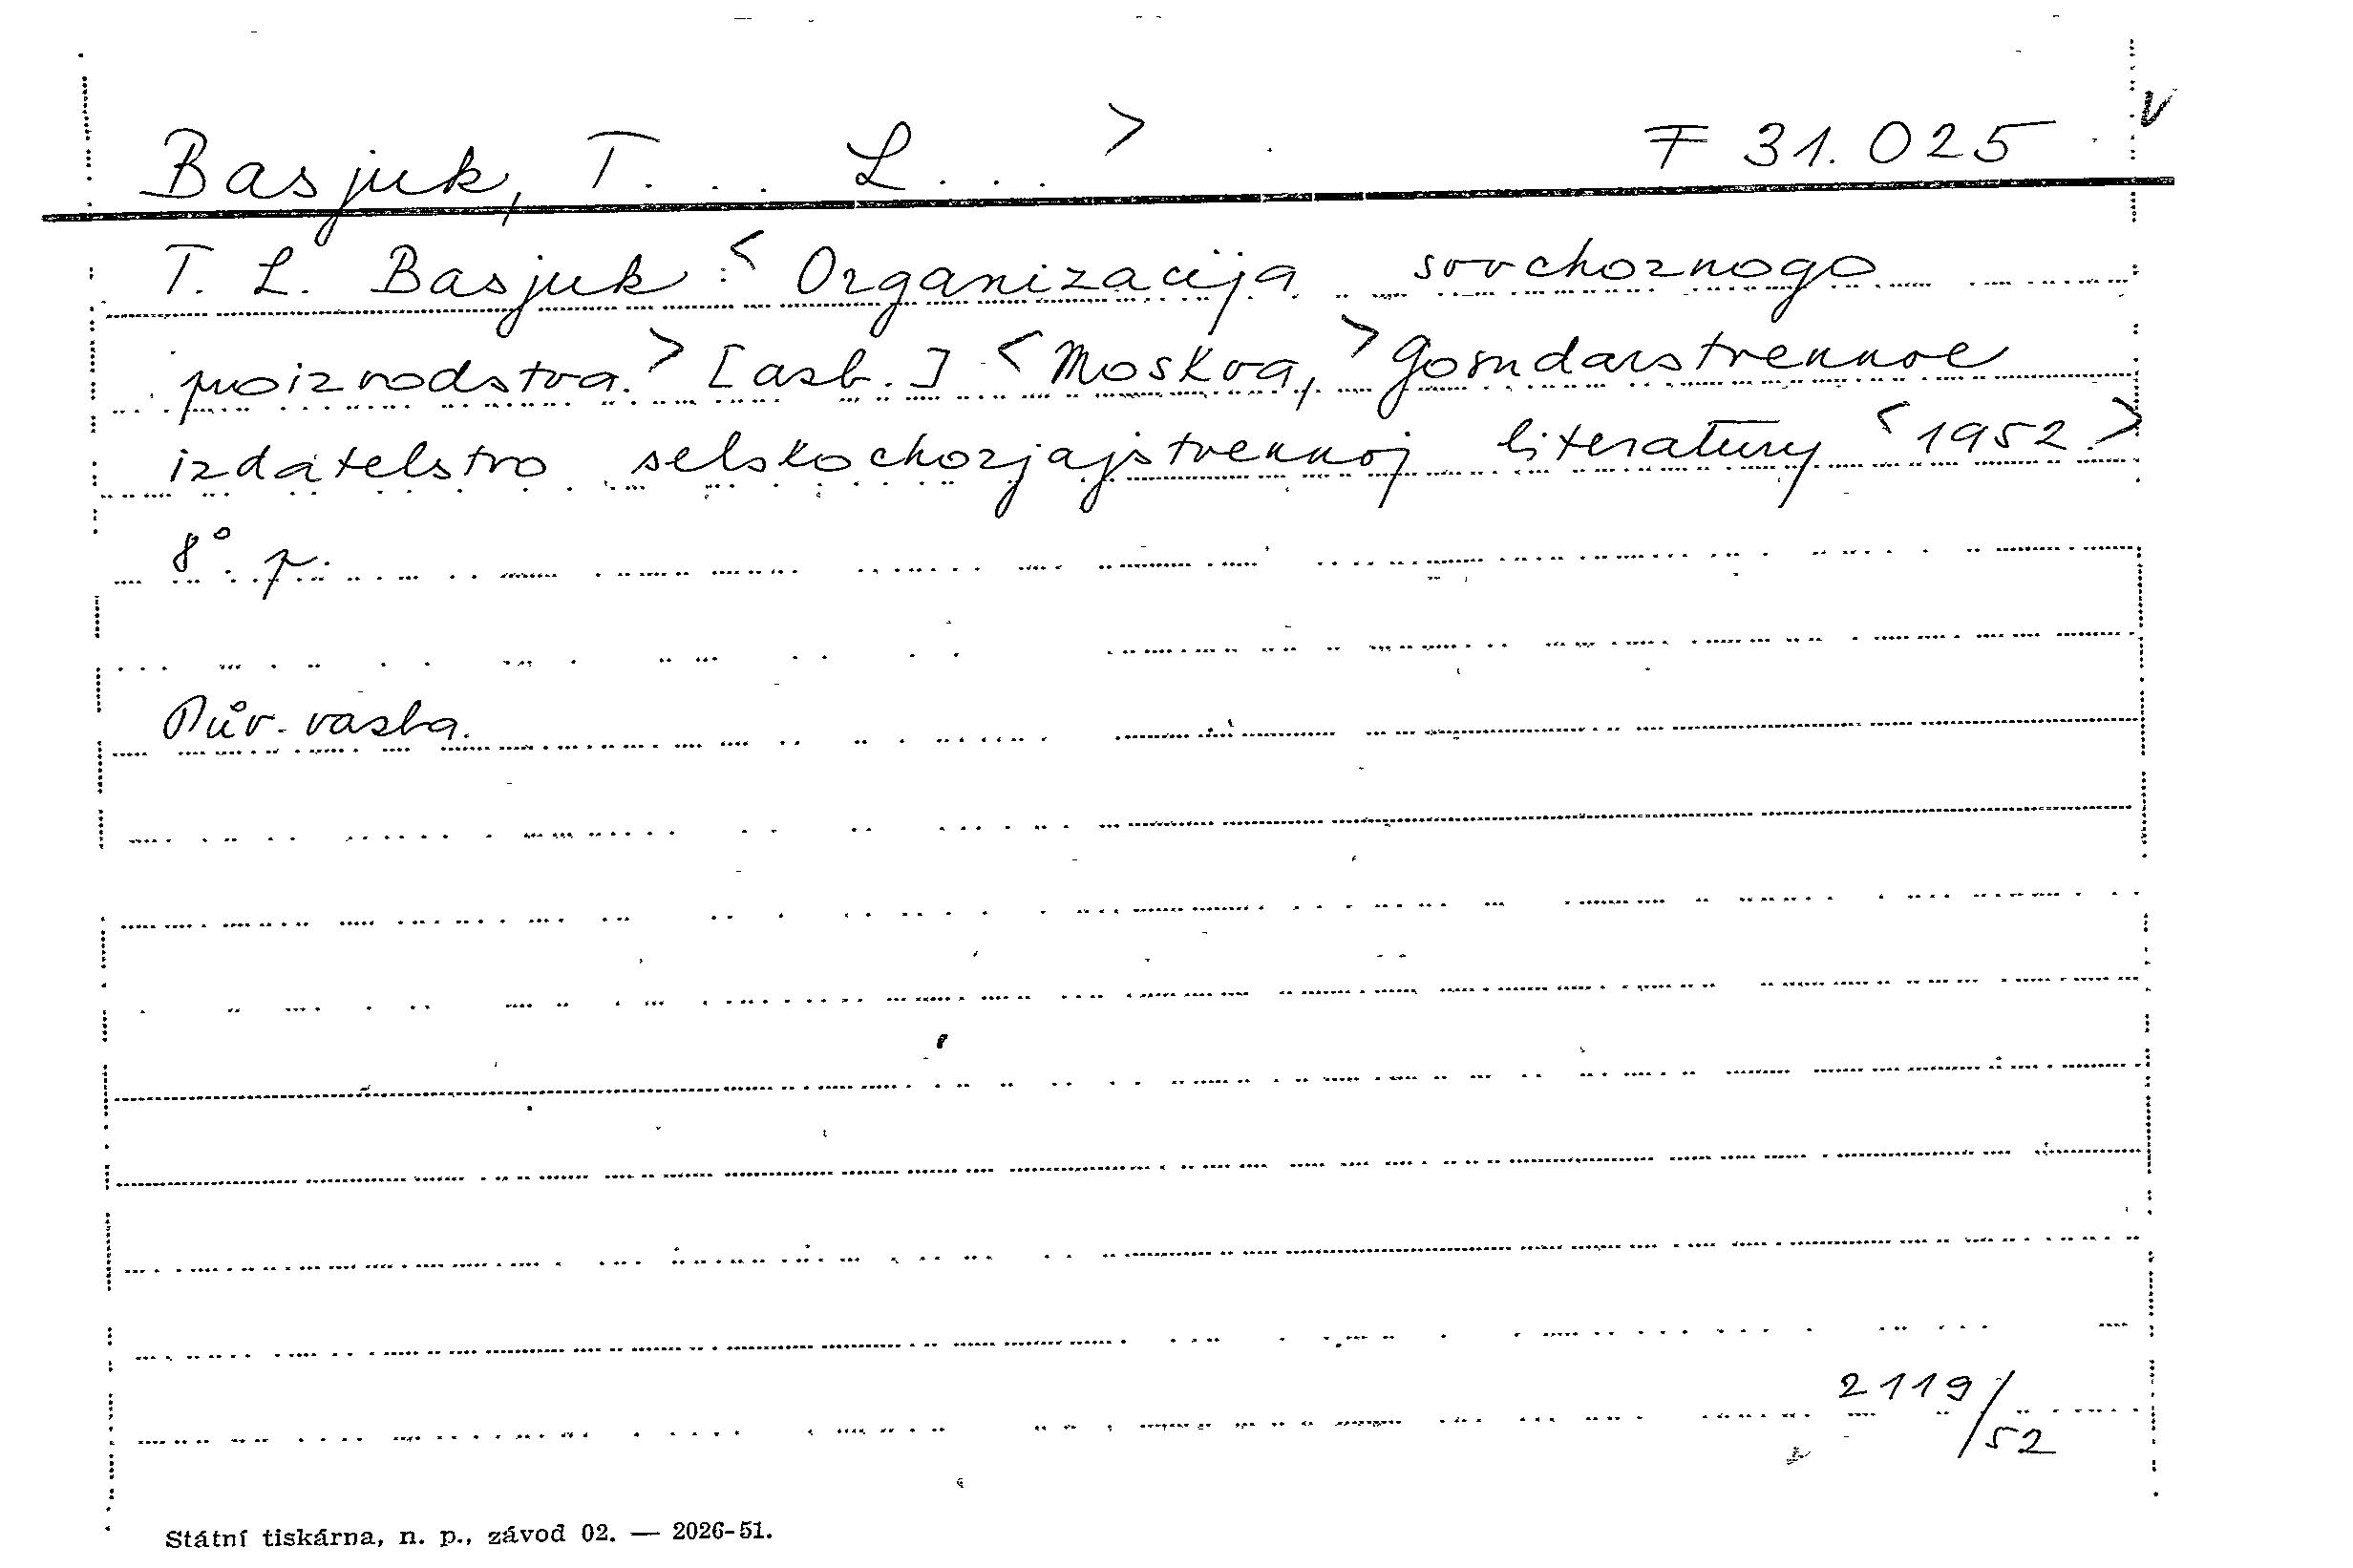 Basjuk, T... L... > F 31.025 v
T. L. Basjuk : < Organizacija sovchoznogo
proizvodstva. > [azb.] < Moskva, > Gosudarstvennoe
izdatelstvo selskochozjajstvennoj literatury < 1952. >
8° p.
Pův. vazba.
2119/52
Státní tiskárna, n. p., závod 02. — 2026-51.